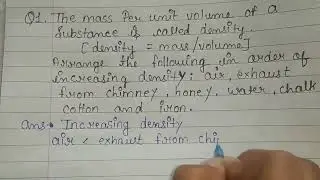 Q1. The mass Per unit volume of a
substance is called density.
[density = mass/volume]
Arrange the following in order of
increasing density: air, exhaust
from chimney, honey, water, chalk
cotton and iron.
Ans• Increasing density
air < exhaust from chi